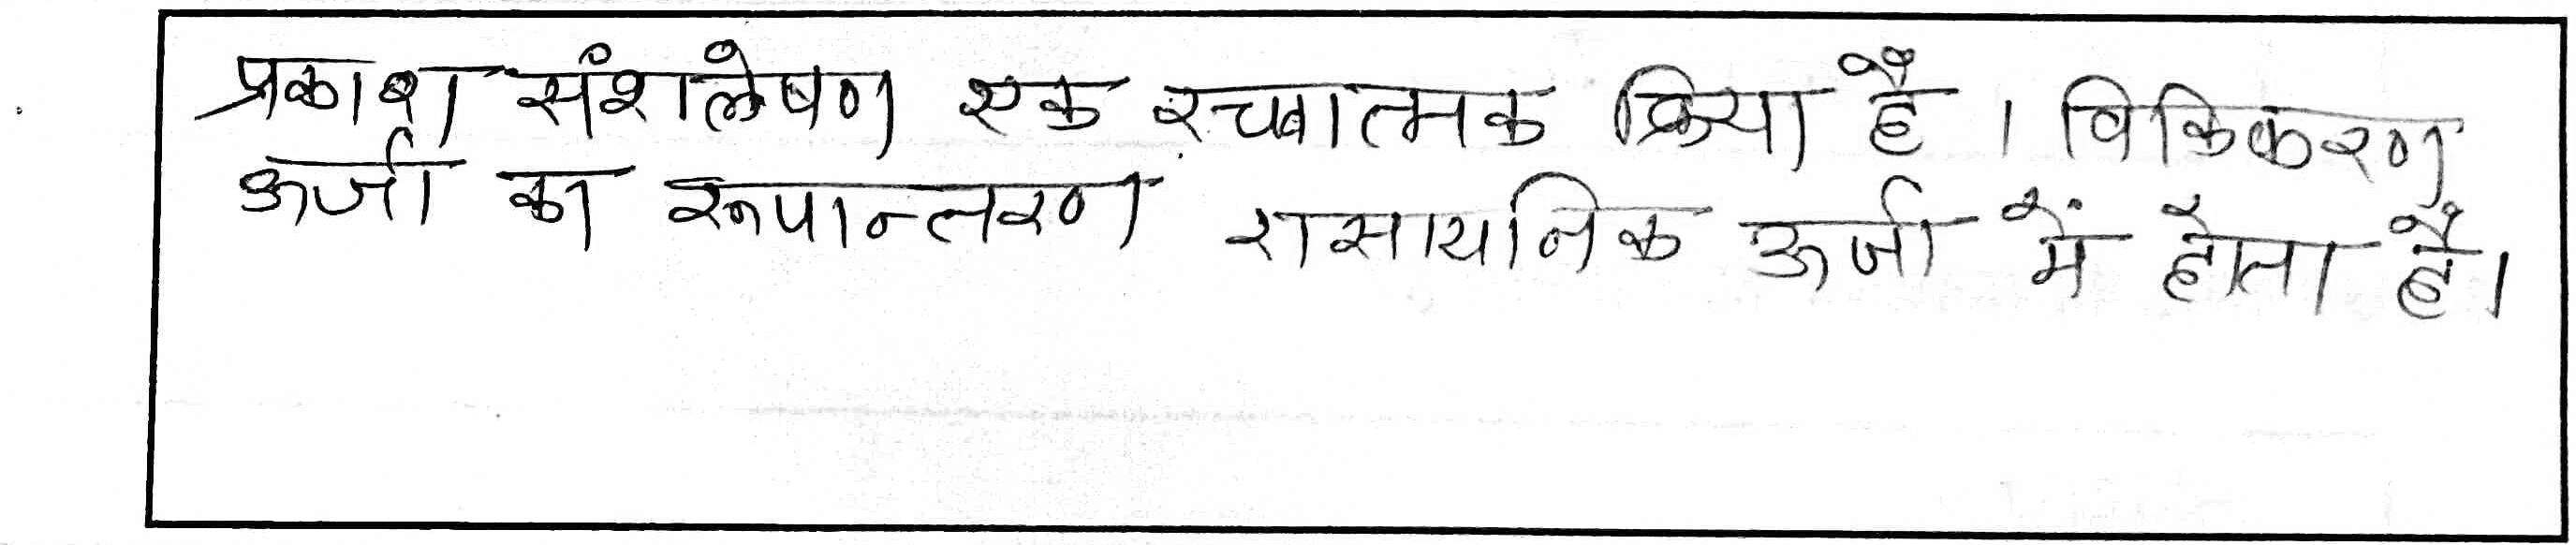 प्रकाश संशलेषण एक रचनात्मक क्रिया है । विकिकरण
ऊर्जा का रूपान्तरण रासायनिक ऊर्जा में होता है।